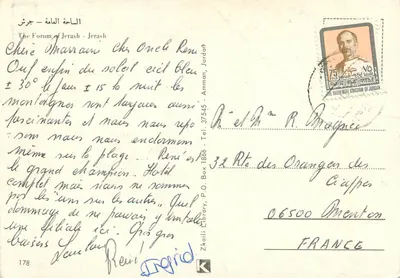 الساحة العامة - جرش
The Forum of Jerash - Jerash
Chère Marraine cher Oncle René
Ouf enfin du soleil ciel bleu
± 30° le jour ± 15 la nuit les
montagnes sont toujours aussi
fascinantes et nous nous repo-
sons nous nous endormons
même sur la plage. René est
le grand champion. Hotel
complet mais nous ne sommes
pas les uns sur les autres. Quel
dommage de ne pouvoir s'installer
une
ici. Gros gros
baisers
René
Ingrid
178
Zkaili Library, P.O. Box 1866 - Tel. 37545 - Amman, Jordan
K
79
٧٥
THE HASHEMITE KINGDOM OF JORDAN
Mr et Mme R.
32 Rte. des Orangers des
06500 Menton
FRANCE